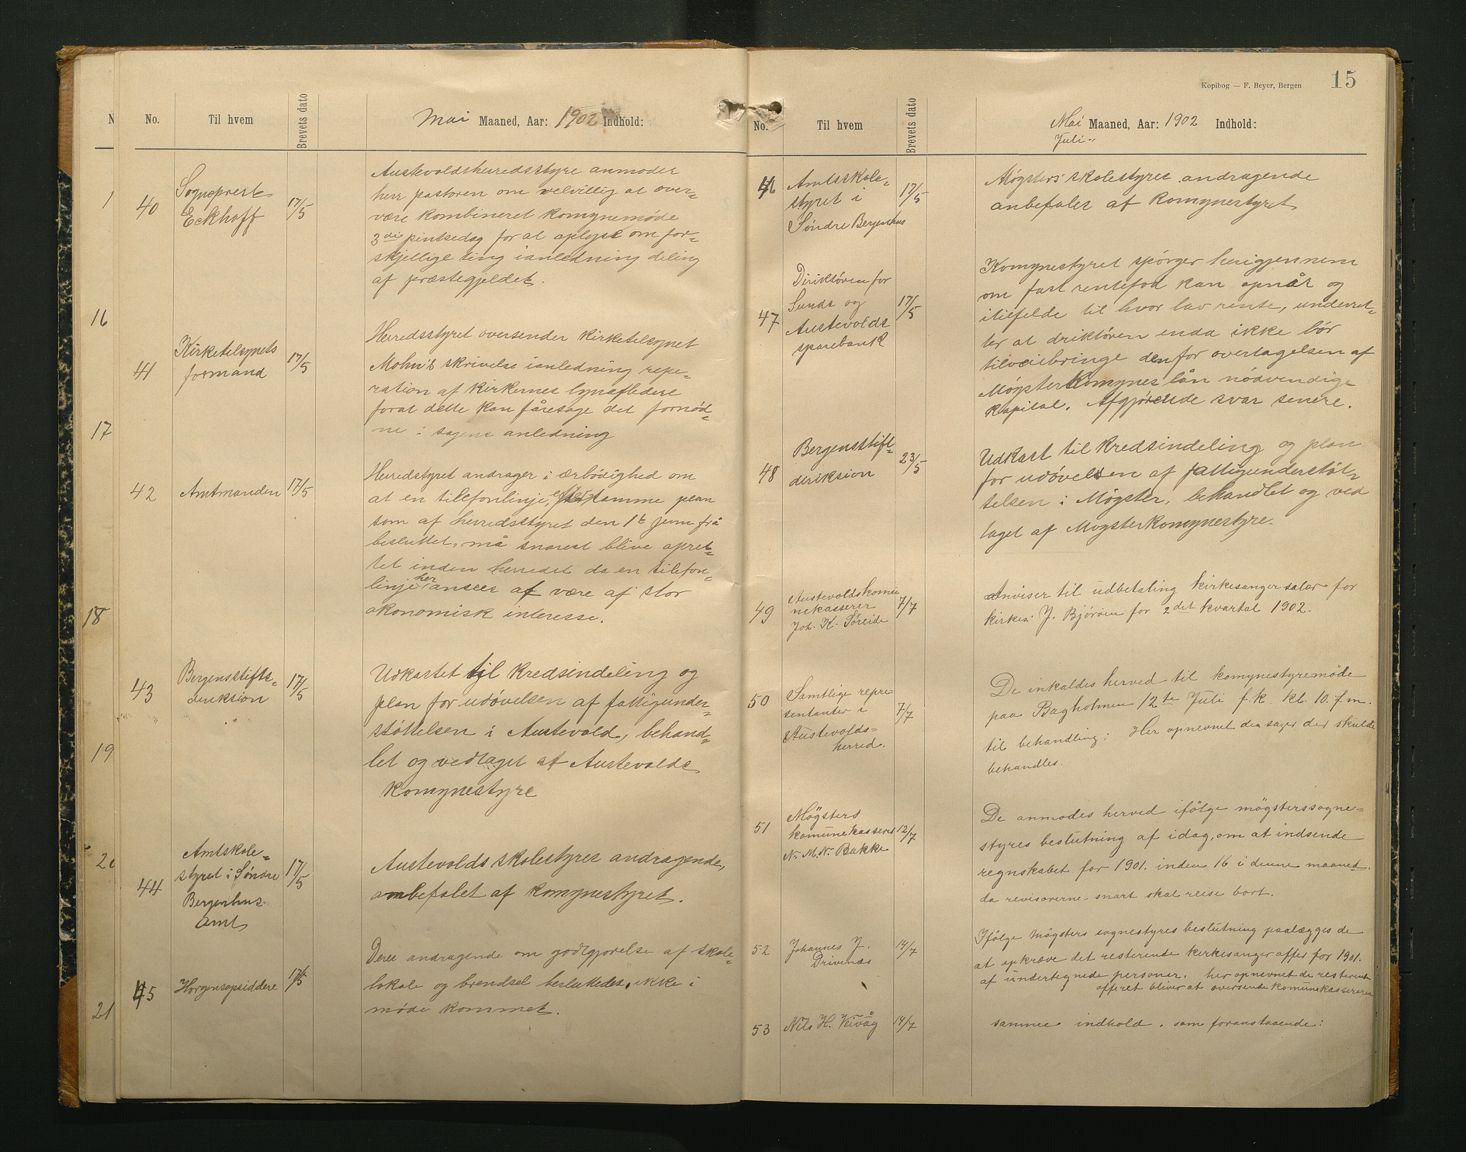 N
1
16
17
18
19
20
21
No. Til hvem Brevets dato Mai Maaned, Aar: 1902 Indhold:
40 Sogneprest
Eckhoff
17/5
Austevoldsherredsstyre anmoder
herr pastoren om velvillig at over-
være kombineret komynemøde
3die pintsedag for at oplyse om for-
skjellige ting i anledning deling
af præstegjeldet.
41 Kirketilsynets
formand
17/5
Herredsstyret oversender kirketilsynet
Mohn's skrivelse ianledning repe-
ration af kirkernes lynafledere
forat dette kan foretage det fornød-
ne i sagens anledning
42 Amtmanden 17/5
Herredstyret andrager i ærbødighed om
at en tilefonlinje, efter samme plan
som af herredsstyret den 16 juni frå
besluttet, må snarest blive opret-
tet inden herredet da en tilefon-
linje her ansees af være af stor
økonomisk interesse.
43 Bergensstifts-
direktion
17/5
Udkastet til kredsindeling og
plan for udøvelsen af fattigunder-
støttelsen i Austevold, behand-
let og vedtaget af Austevolds
komynestyre
44 Amtskole-
styret i Søndre
Bergenhus
Amt
17/5
Austevolds skolestyres andragende,
anbefalet af komynestyret.
45 Horgensopsiddere 17/5
Deres andragende om godtgjørelse af skole-
lokale og brendsel besluttedes ikke i
møde kommet.
Kopibog — F. Beyer, Bergen 15
No. Til hvem Brevets dato Mai Maaned, Aar: 1902 Indhold:
Juli "
46 Amtsskole-
styret i
Søndre Bergenhus
17/5
Møgsters skolestyres andragende
anbefales af komynestyret
47 Diriktøren for
Sunds og
Austevolds
sparebank
17/5
Komynestyret spørger herigjennem
om fast rentefod kan opnåes og
itilfelde til hvor lav rente, underret-
ter at driktøren enda ikke bør
tilveiebringe den for overtagelsen af
Møgsterkomynes lån nødvendige
kapital. Afgjørende svar senere.
48 Bergensstift-
diriksion
23/5
Udkast til kredsindeling og plan
for udøvelsen af fattigunderstøt-
telsen i Møgster, behandlet og ved
taget af Møgsterkomynestyre.
49 Austevoldskomu
nekasserer
Joh. K. Søreide
7/7
Anviser til udbetaling kirkesanger salær for
kirkes. J. Bjørøen for 2det kvartal 1902.
50 Samtlige repre
sentanter i
Austevolds-
herred.
7/7
De inkaldes herved til komynestyremøde
paa Bagholmen 12te Juli f. k. kl. 10. f. m.
til behandling: Her opnevnet den sager der skulde
behandles.
51 Møgsters
komunekasserer
N. M. N. Bakke
12/7
De anmodes herved ifølge møgsterssogne-
styres beslutning af idag, om at indsende
regnskabet for 1901. inden 16 i denne maaned.
da revisorerne snart skal reise bort.
52 Johannes J.
Drivenes
14/7
Ifølge Møgsters sognestyres beslutning paalægges de
at opkræve det resterende kirkesanger offer for 1901.
af undertegnede personer. her opnevnet de resterende
offeret bliver at oversende komunekassereren
53 Nils H. Kivåg 14/7
samme indhold. som foranstaaende: